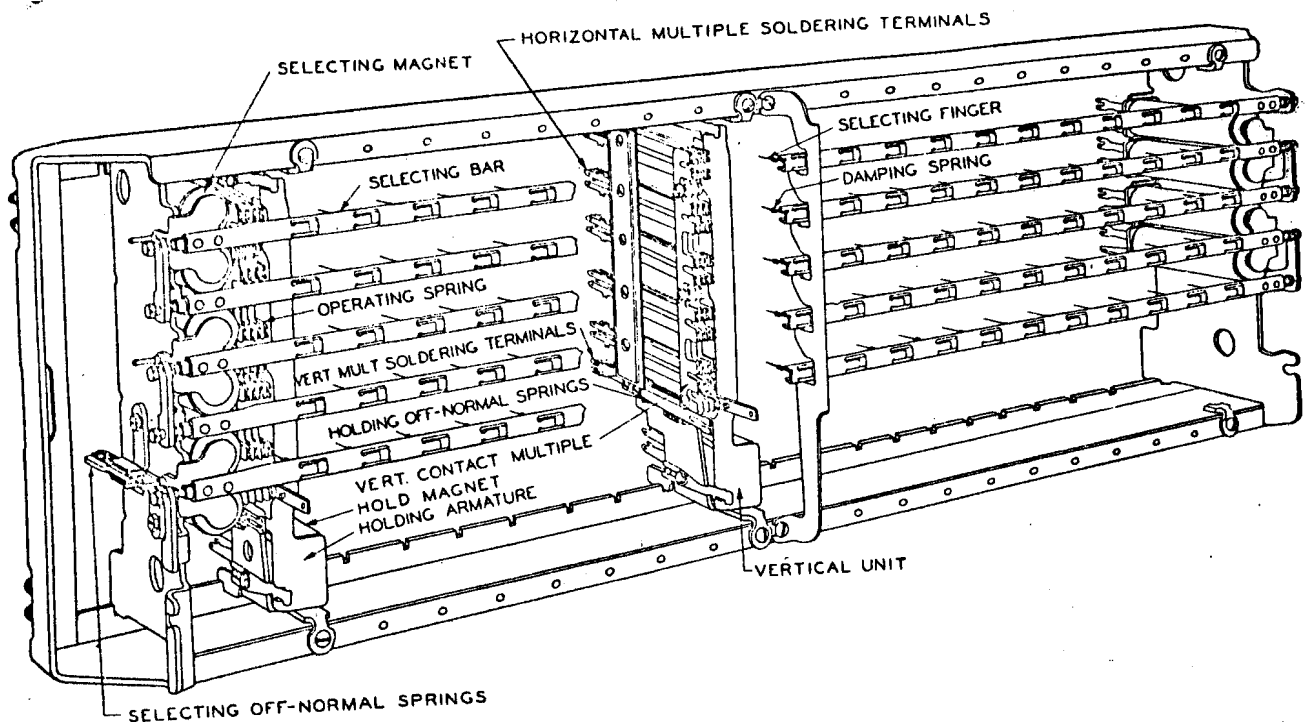 HORIZONTAL MULTIPLE SOLDERING TERMINALS
SELECTING MAGNET
SELECTING FINGER
SELECTING BAR
DAMPING SPRING
OPERATING SPRING
VERT MULT SOLDERING TERMINALS
HOLDING OFF-NORMAL SPRINGS
VERT. CONTACT MULTIPLE
HOLD MAGNET
HOLDING ARMATURE
VERTICAL UNIT
SELECTING OFF-NORMAL SPRINGS